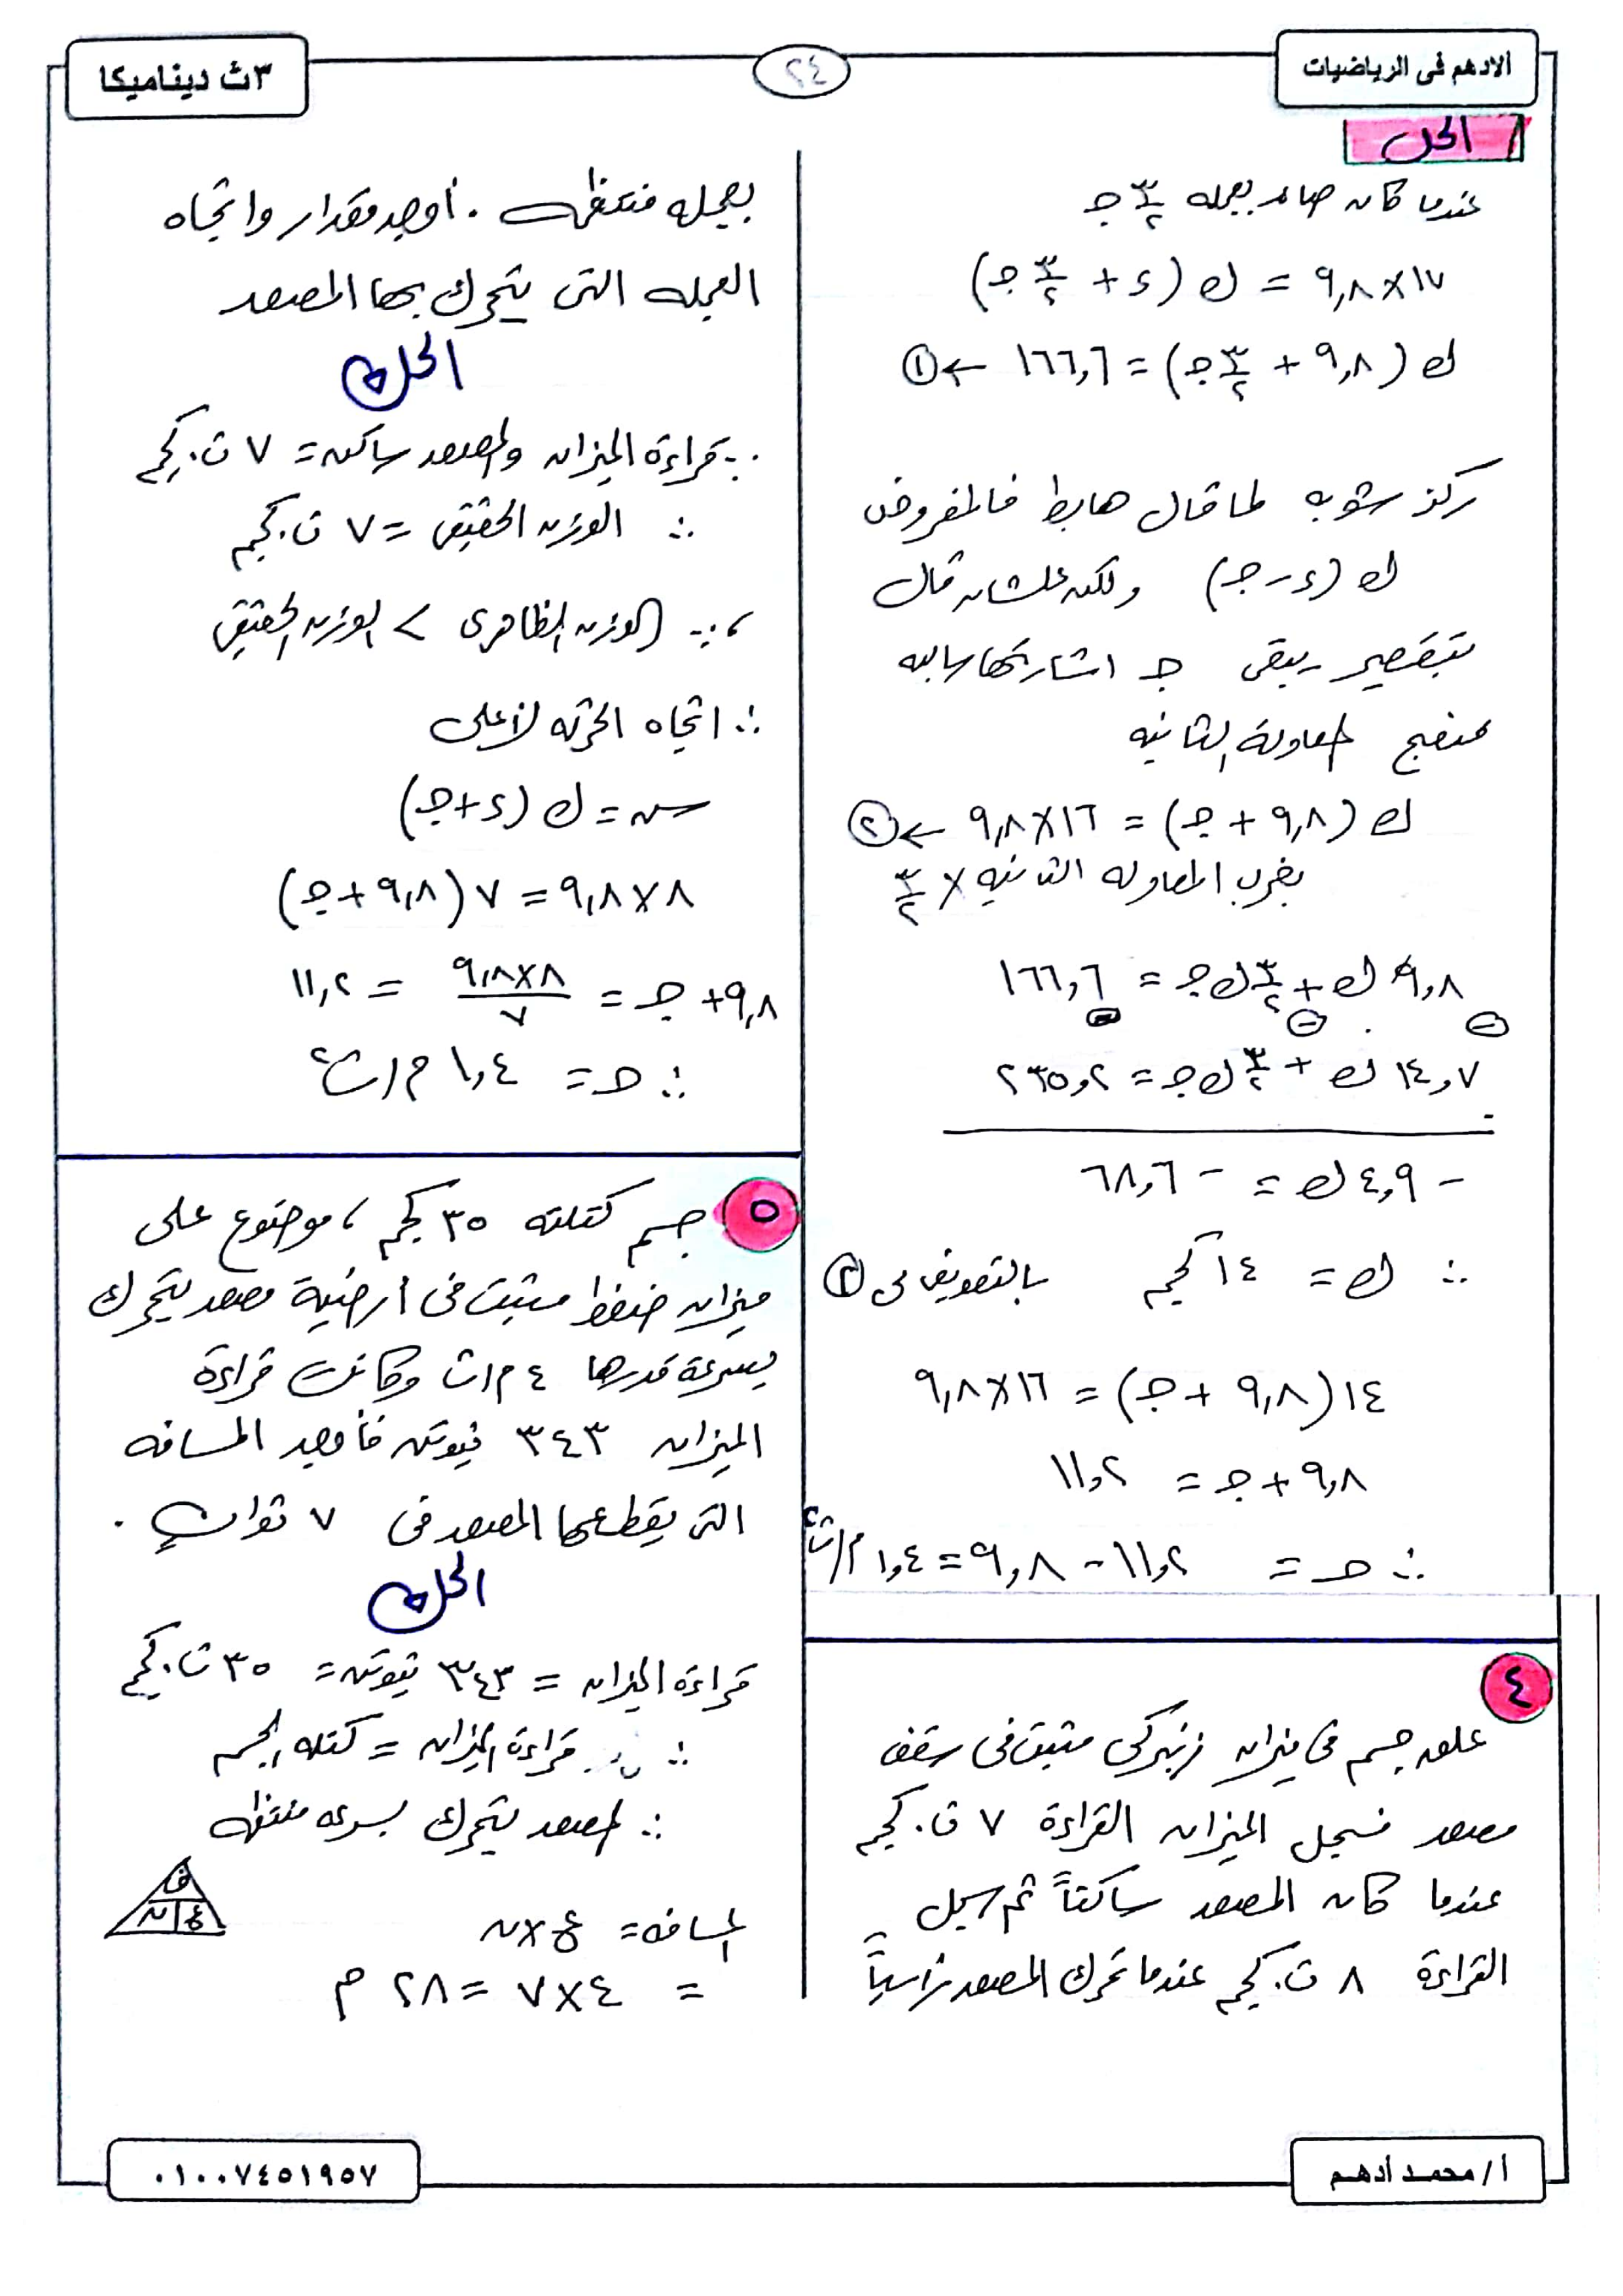 الادهم فى الرياضيات
٢٤
٣ث ديناميكا
الحل
عندما كان صاعد بعجلة ٣/٢ جـ
١٧×٩,٨ = ك (د + ٣/٢ جـ)
ك (٩,٨ + ٣/٢ جـ) = ١٦٦,٦ ← ①
ركز شويه لما قال هابط فالمفروض
ك (د - جـ) ولكن علشان قال
بتقصير يبقى جـ اشارتها سالبه
فتصبح المعادلة الثانيه
ك (٩,٨ + جـ) = ١٦×٩,٨ ← ②
بضرب المعادله الثانيه × ٣/٢
٩,٨ ك + ٣/٢ ك جـ = ١٦٦,٦
١٤,٧ ك + ٣/٢ ك جـ = ٢٣٥,٢
- ٤,٩ ك = - ٦٨,٦
∴ ك = ١٤ كجم بالتعويض فى ②
١٤ (٩,٨ + جـ) = ١٦×٩,٨
٩,٨ + جـ = ١١,٢
∴ جـ = ١١,٢ - ٩,٨ = ١,٤ م/ث٢
٤
علق جسم فى ميزان زنبركى مثبت فى سقف
مصعد فسجل الميزان القراءة ٧ ث.كجم
عندما كان المصعد ساكناً ثم سجل
القراءة ٨ ث.كجم عندما تحرك المصعد رأسياً
بعجله منتظمه . أوجد مقدار واتجاه
العجله التى يتحرك بها المصعد
الحل
∵ قراءة الميزان والمصعد ساكن = ٧ ث.كجم
∴ الوزن الحقيقى = ٧ ث.كجم
، ∵ الوزن الظاهرى > الوزن الحقيقى
∴ اتجاه الحركه لأعلى
سہ = ك (د + جـ)
٨×٩,٨ = ٧ (٩,٨ + جـ)
٩,٨ + جـ = ٨×٩,٨/٧ = ١١,٢
∴ جـ = ١,٤ م/ث٢
٥ جسم كتلته ٣٥ كجم ، موضوع على
ميزان ضغط مثبت فى أرضية مصعد يتحرك
بسرعة قدرها ٤ م/ث وكانت قراءة
الميزان ٣٤٣ نيوتن فأوجد المسافه
التى يقطعها المصعد فى ٧ ثوانٍ .
الحل
قراءة الميزان = ٣٤٣ نيوتن = ٣٥ ث.كجم
∴ قراءة الميزان = كتله الجسم
∴ المصعد يتحرك بسرعه منتظمه
ف
ع ن
المسافه = ع × ن
= ٤×٧ = ٢٨ م
أ/ محمد أدهم
٠١٠٠٧٤٥١٩٥٧